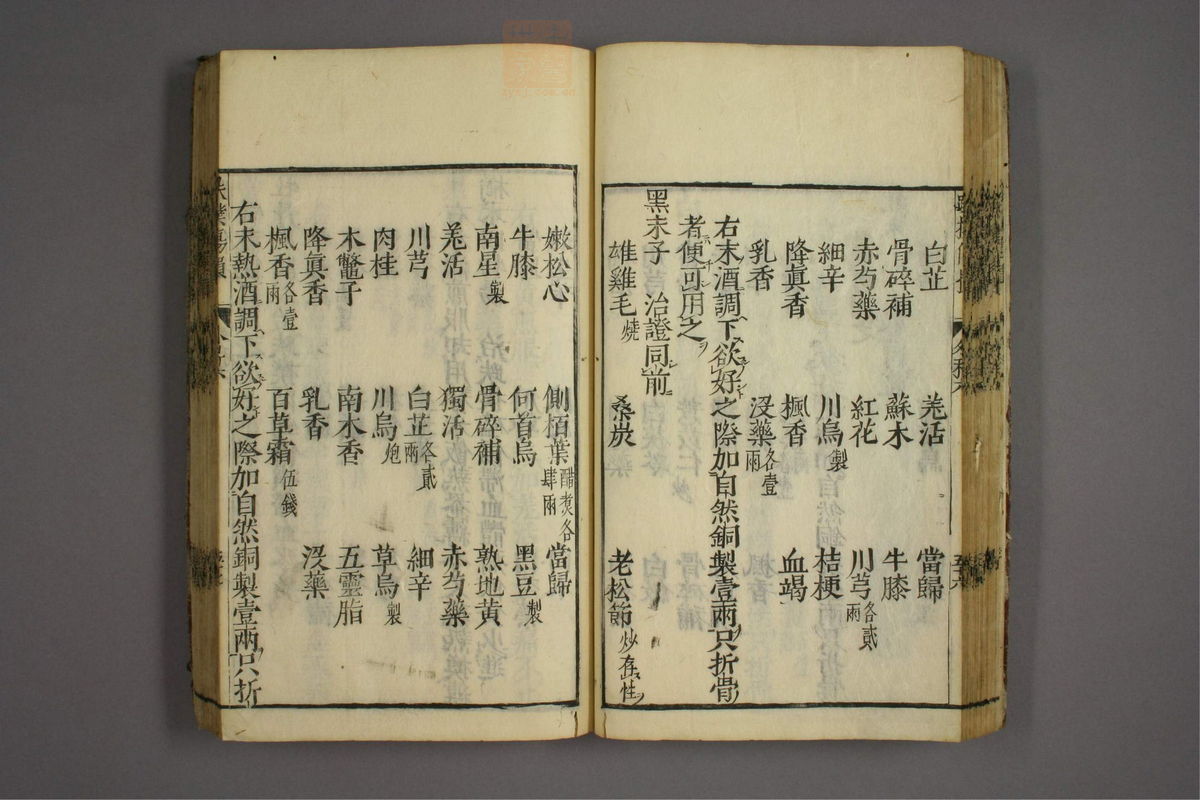 白芷 羗活 當歸
骨碎補 蘇木 牛膝
赤芍藥 紅花 川芎各貳兩
細辛 川烏製 桔梗
降眞香 楓香 血竭
乳香 沒藥各壹兩
右末酒調下欲好之際加自然銅製壹兩只折骨
者便可用之
黑末子 治證同前
雄雞毛燒 桑炭 老松節炒存性
嫩松心 側栢葉醋煑各肆兩 當歸
牛膝 何首烏 黑豆製
南星製 骨碎補 熟地黃
羗活 獨活 赤芍藥
川芎 白芷各貳兩 細辛
肉桂 川烏炮 草烏製
木鱉子 南木香 五靈脂
降眞香 乳香 沒藥
楓香各壹兩 百草霜伍錢
右末熱酒調下欲好之際加自然銅製壹兩只折